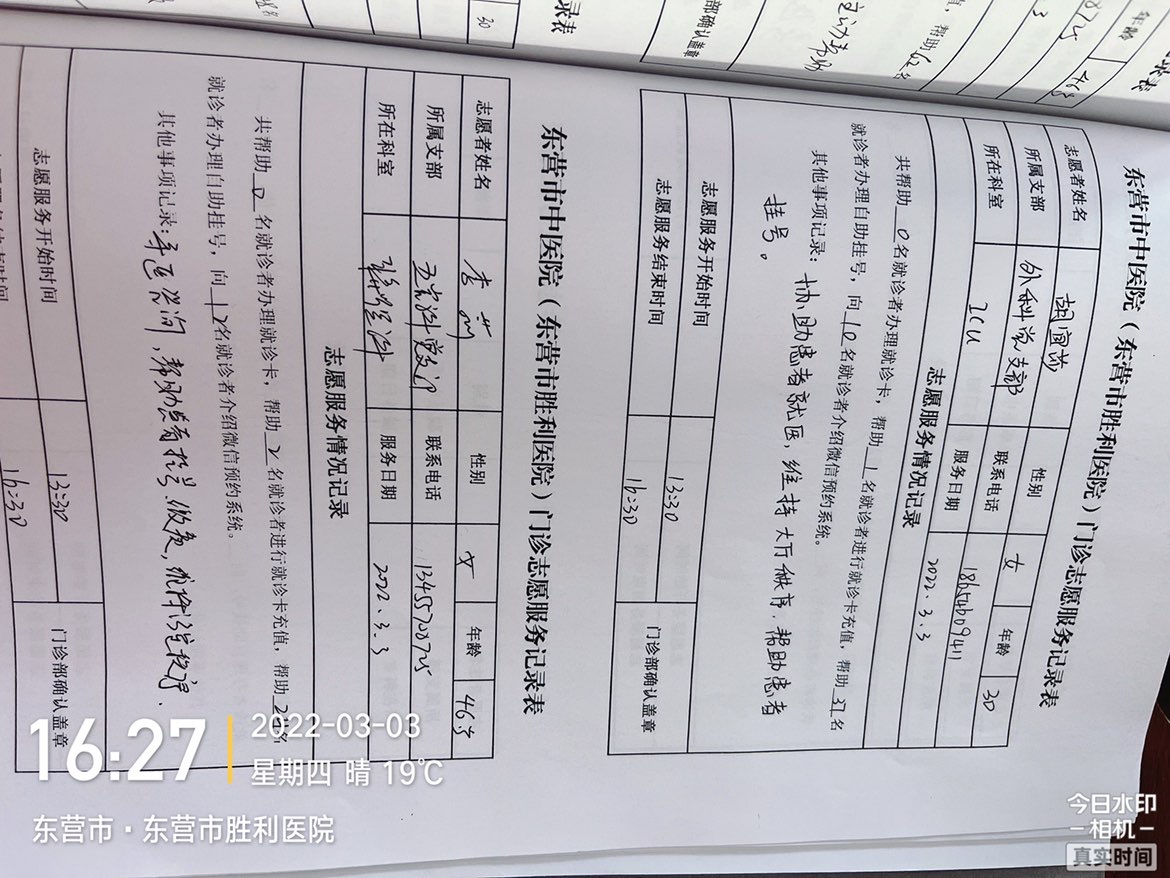 东营市中医院（东营市胜利医院）门诊志愿服务记录表
志愿者姓名 性别 女 年龄 30
所属支部 外科党支部 联系电话
所在科室 ICU 服务日期 2022.3.3
志愿服务情况记录
共帮助 0 名就诊者办理就诊卡，帮助 1 名就诊者进行就诊卡充值，帮助 31 名
就诊者办理自助挂号，向 10 名就诊者介绍微信预约系统。
其他事项记录：协助患者就医，维持大厅秩序，帮助患者
挂号。
志愿服务开始时间 13:30 门诊部确认盖章
志愿服务结束时间 16:30
东营市中医院（东营市胜利医院）门诊志愿服务记录表
志愿者姓名 性别 女 年龄 46岁
所属支部 联系电话 13455708725
所在科室 服务日期 2022.3.3
志愿服务情况记录
共帮助 0 名就诊者办理就诊卡，帮助 2 名就诊者进行就诊卡充值，帮助 名
就诊者办理自助挂号，向 12 名就诊者介绍微信预约系统。
其他事项记录：导医咨询，帮助患者挂号
志愿服务开始时间 13:30 门诊部确认盖章
16:30
16:27
2022-03-03
星期四 晴 19℃
东营市·东营市胜利医院
今日水印
相机
真实时间